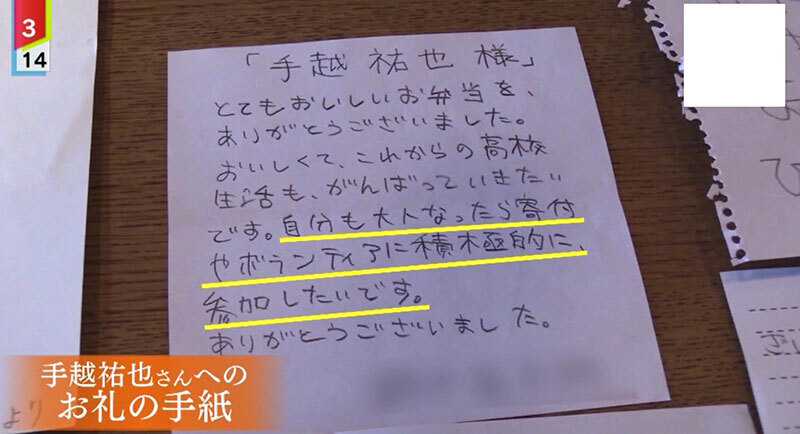 3
14
「手越 祐也 様」
とてもおいしいお弁当を、
ありがとうございました。
おいしくて、これからの高校
生活も、がんばっていきたい
です。自分も大人なったら寄付
やボランティアに積極的に、
参加したいです。
ありがとうございました。
より
手越祐也さんへの
お礼の手紙